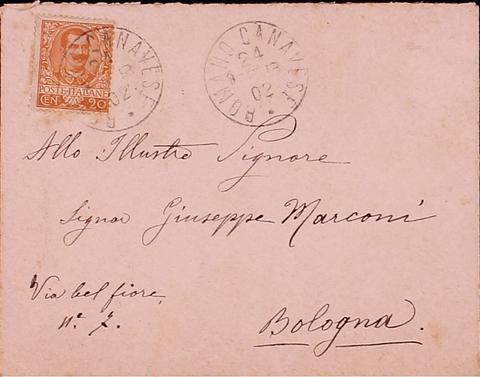 POSTE ITALIANE
CEN. 20
ROMANO CANAVESE
24 8 02
Allo Illustre Signore
Signor Giuseppe Marconi
Via bel fiore,
nº 7.
Bologna.